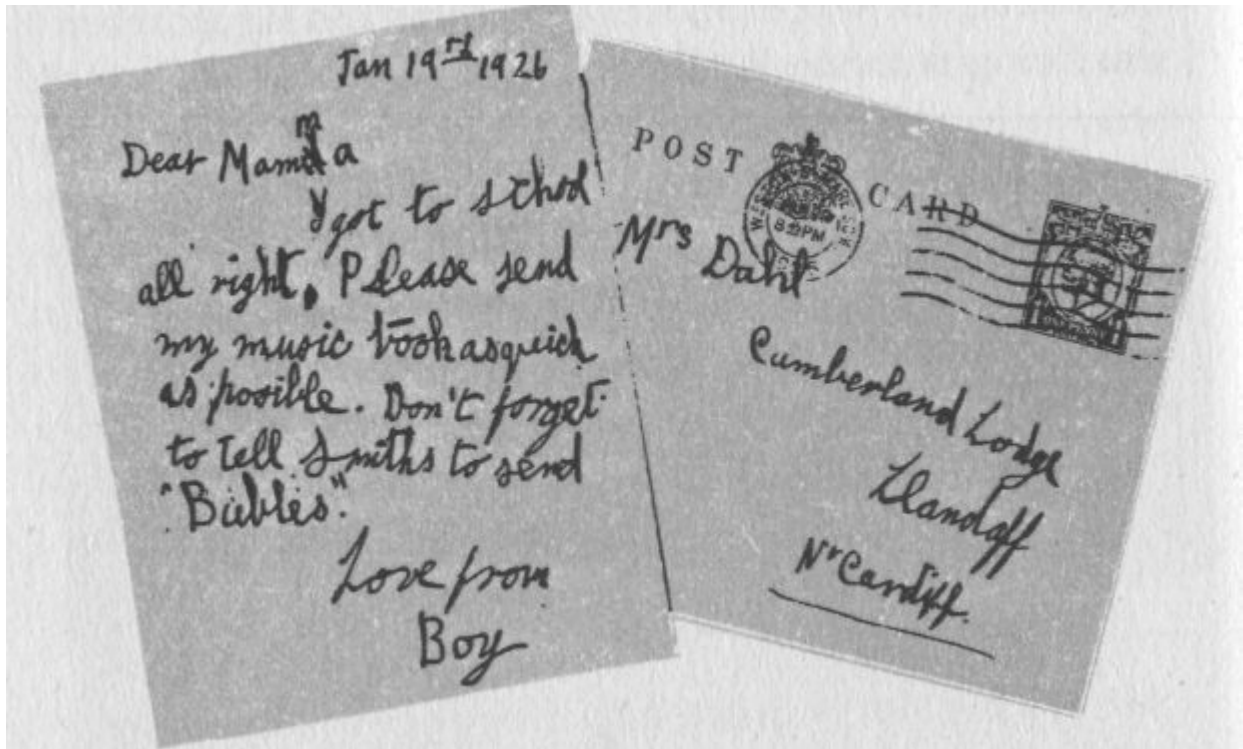 Jan 19rd 1926
Dear Mamma
I got to school
all right. Please send
my music book as quick
as posible. Don't forget
to tell Smiths to send
"Bubbles".
Love from
Boy
POST CARD
8 PM
Mrs Dahl
Cumberland Lodge
Llandaff
Nr Cardiff.